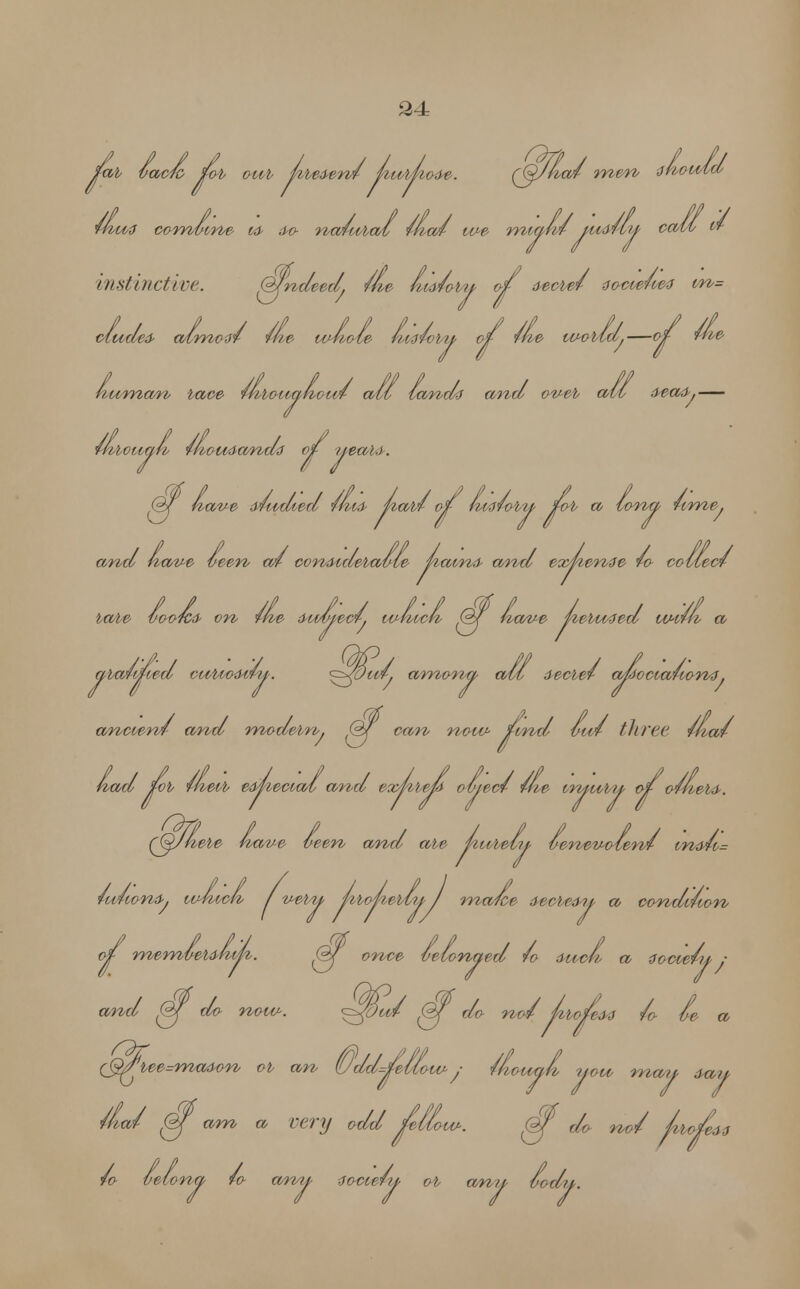 24
far back for our present purpose. That men should
thus combine is so natural that we might justly call it
instinctive. Indeed, the history of secret societies in=
cludes almost the whole history of the world,—of the
human race throughout all lands and over all seas,—
through thousands of years.
I have studied this part of history for a long time,
and have been at considerable pains and expense to collect
rare books on the subject, which I have perused with a
gratified curiosity. But, among all secret associations,
ancient and modern, I can now find but three that
had for their especial and express object the injury of others.
There have been and are purely benevolent insti=
tutions, which (very properly) make secresy a condition
of membership. I once belonged to such a society;
and I do now. But I do not profess to be a
Free=mason or an Odd=fellow; though you may say
that I am a very odd fellow. I do not profess
to belong to any society or any body.